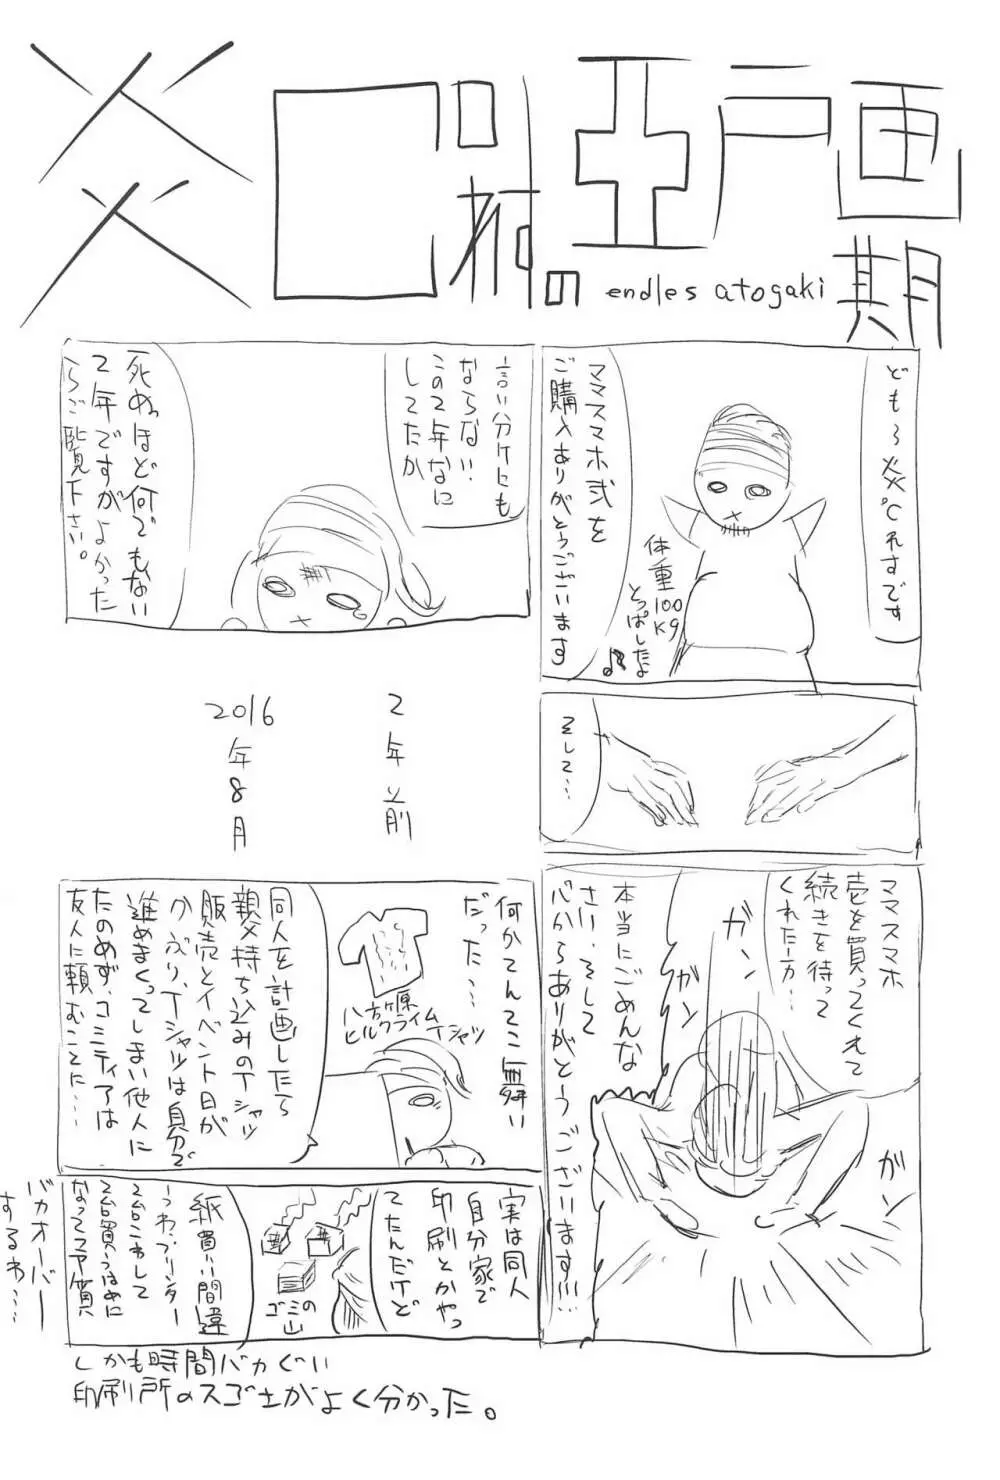 の
endles atogaki
期
どもゝ炎℃れすです
ママスマホ弐を
ご購入ありがとうございます
体重100kg
とっぱしたよ♪
そして…
ママスマホ
壱を買ってくれて
続きを待って
くれた方…
本当にごめんな
さい、そして
心からありがとうございます!!!
ガン
ガン
ガン
言い分けにも
ならない
この2年なに
してたか
死ぬほど何でもない
2年ですがよかった
らご覧下さい。
2年前
2016年8月
何かてんてこ舞い
だった…
八方ヶ原
ヒルクライムTシャツ
同人を計画したら
親父持ち込みのTシャツ
販売とイベント日が
かぶり、Tシャツは自分で
進めまくってしまい他人に
たのめず、コミティアは
友人に頼むことに…
実は同人
自分家で
印刷とかやっ
てたんだけど
ゴミの
山
紙買い間違
うわ、プリンター
2台こわして
2台買うはめに
なってマヂ質
バカオーバー
するわ…
しかも時間バカぐい
印刷所のスゴさがよく分かった。